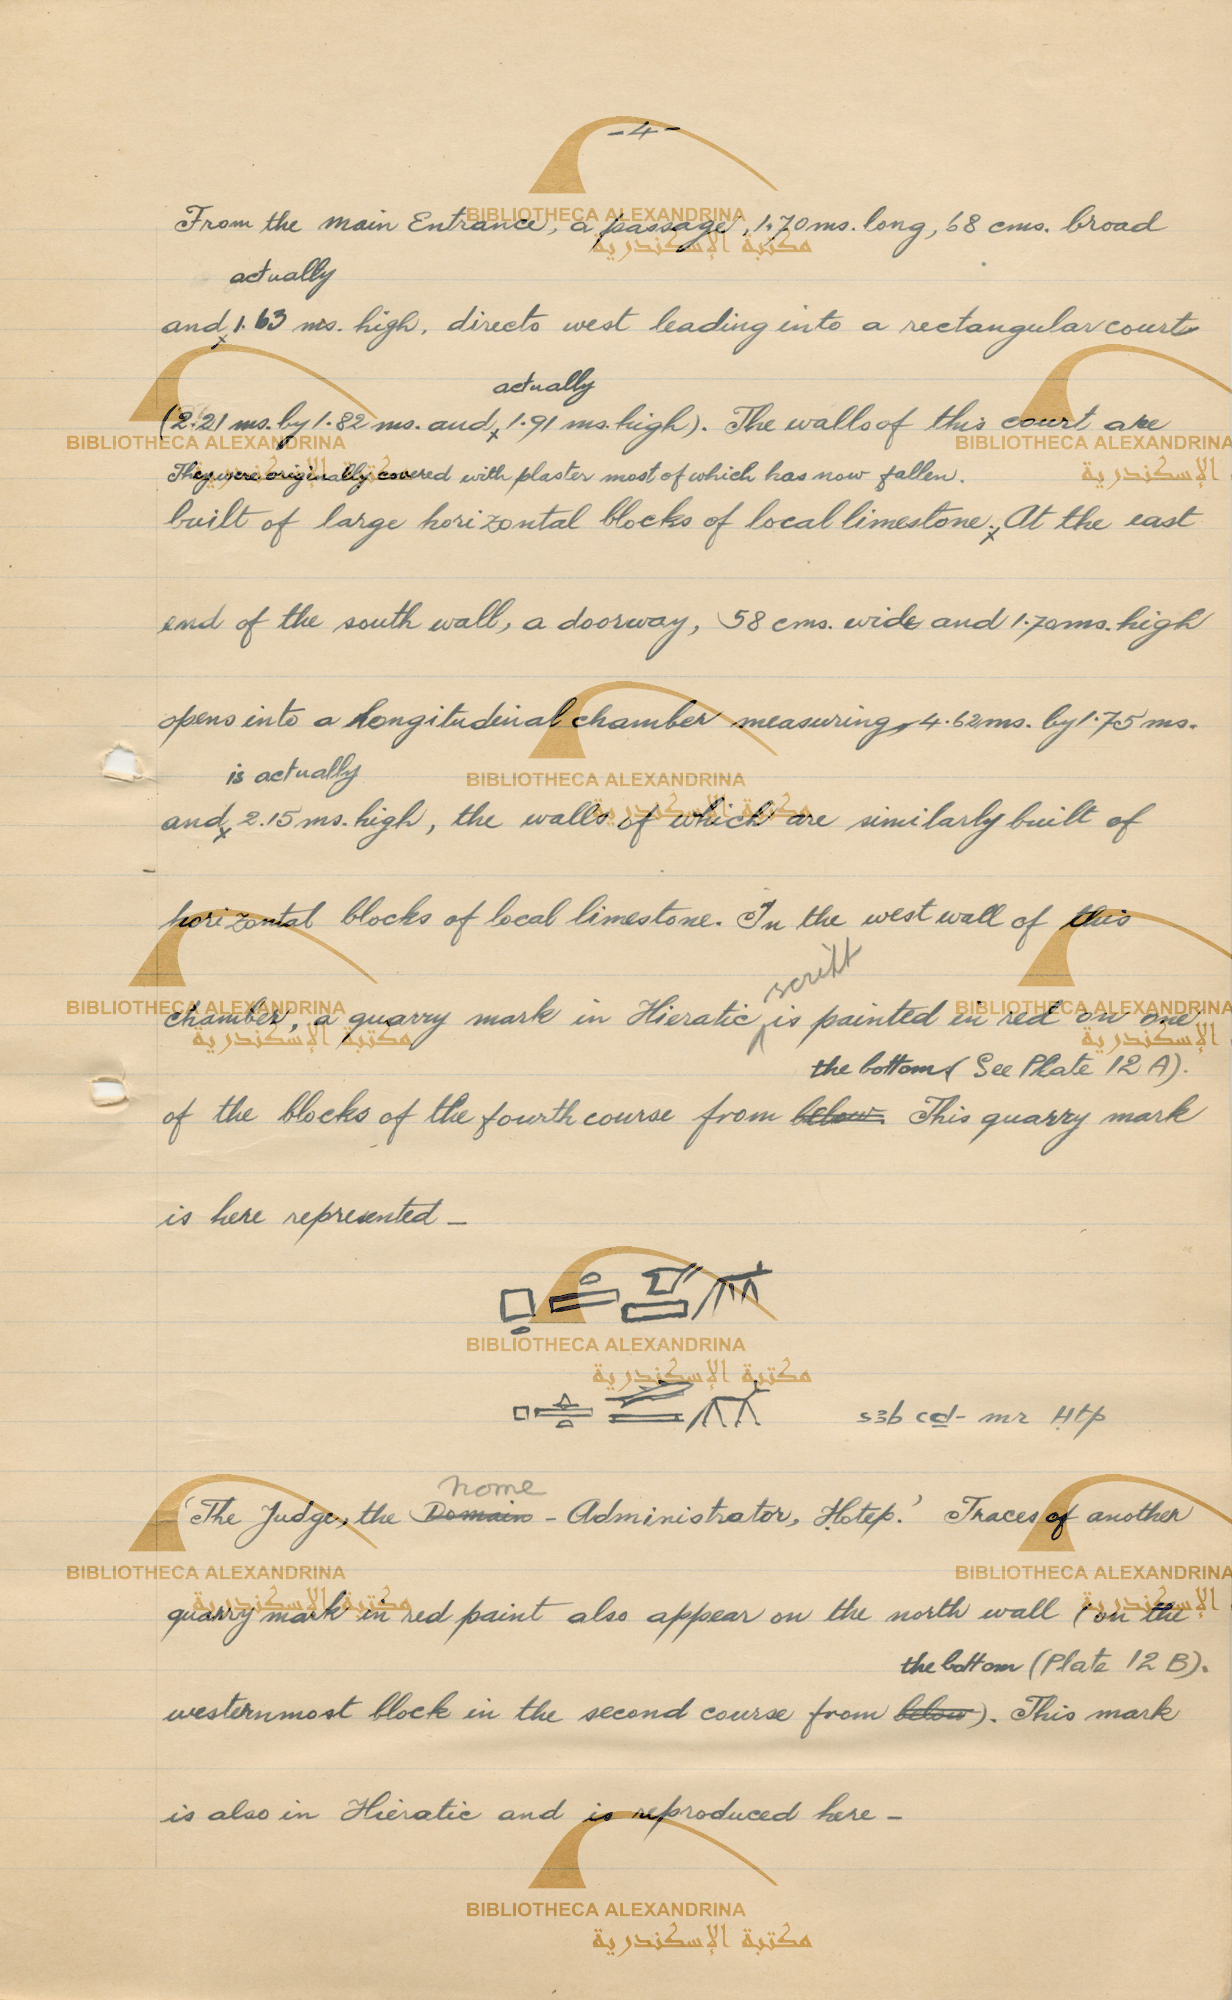 -4-
From the main Entrance, a passage, 1.70 ms. long, 68 cms. broad
actually
and 1.63 ms. high, directs west leading into a rectangular court
actually
(2.21 ms. by 1.82 ms. and 1.91 ms. high). The walls of this court are
They were originally covered with plaster most of which has now fallen.
built of large horizontal blocks of local limestone. At the east
end of the south wall, a doorway, 58 cms. wide and 1.70 ms. high
opens into a longitudinal chamber measuring 4.62 ms. by 1.75 ms.
is actually
and 2.15 ms. high, the walls of which are similarly built of
horizontal blocks of local limestone. In the west wall of this
script
chamber, a quarry mark in Hieratic is painted in red on one
the bottom (See Plate 12 A).
of the blocks of the fourth course from below. This quarry mark
is here represented _
s3b cd- mr Htp
nome
'The Judge, the Domain - Administrator, Hotep.' Traces of another
quarry mark in red paint also appear on the north wall (on the
the bottom (Plate 12 B).
westernmost block in the second course from below). This mark
is also in Hieratic and is reproduced here -
BIBLIOTHECA ALEXANDRINA
مكتبة الإسكندرية